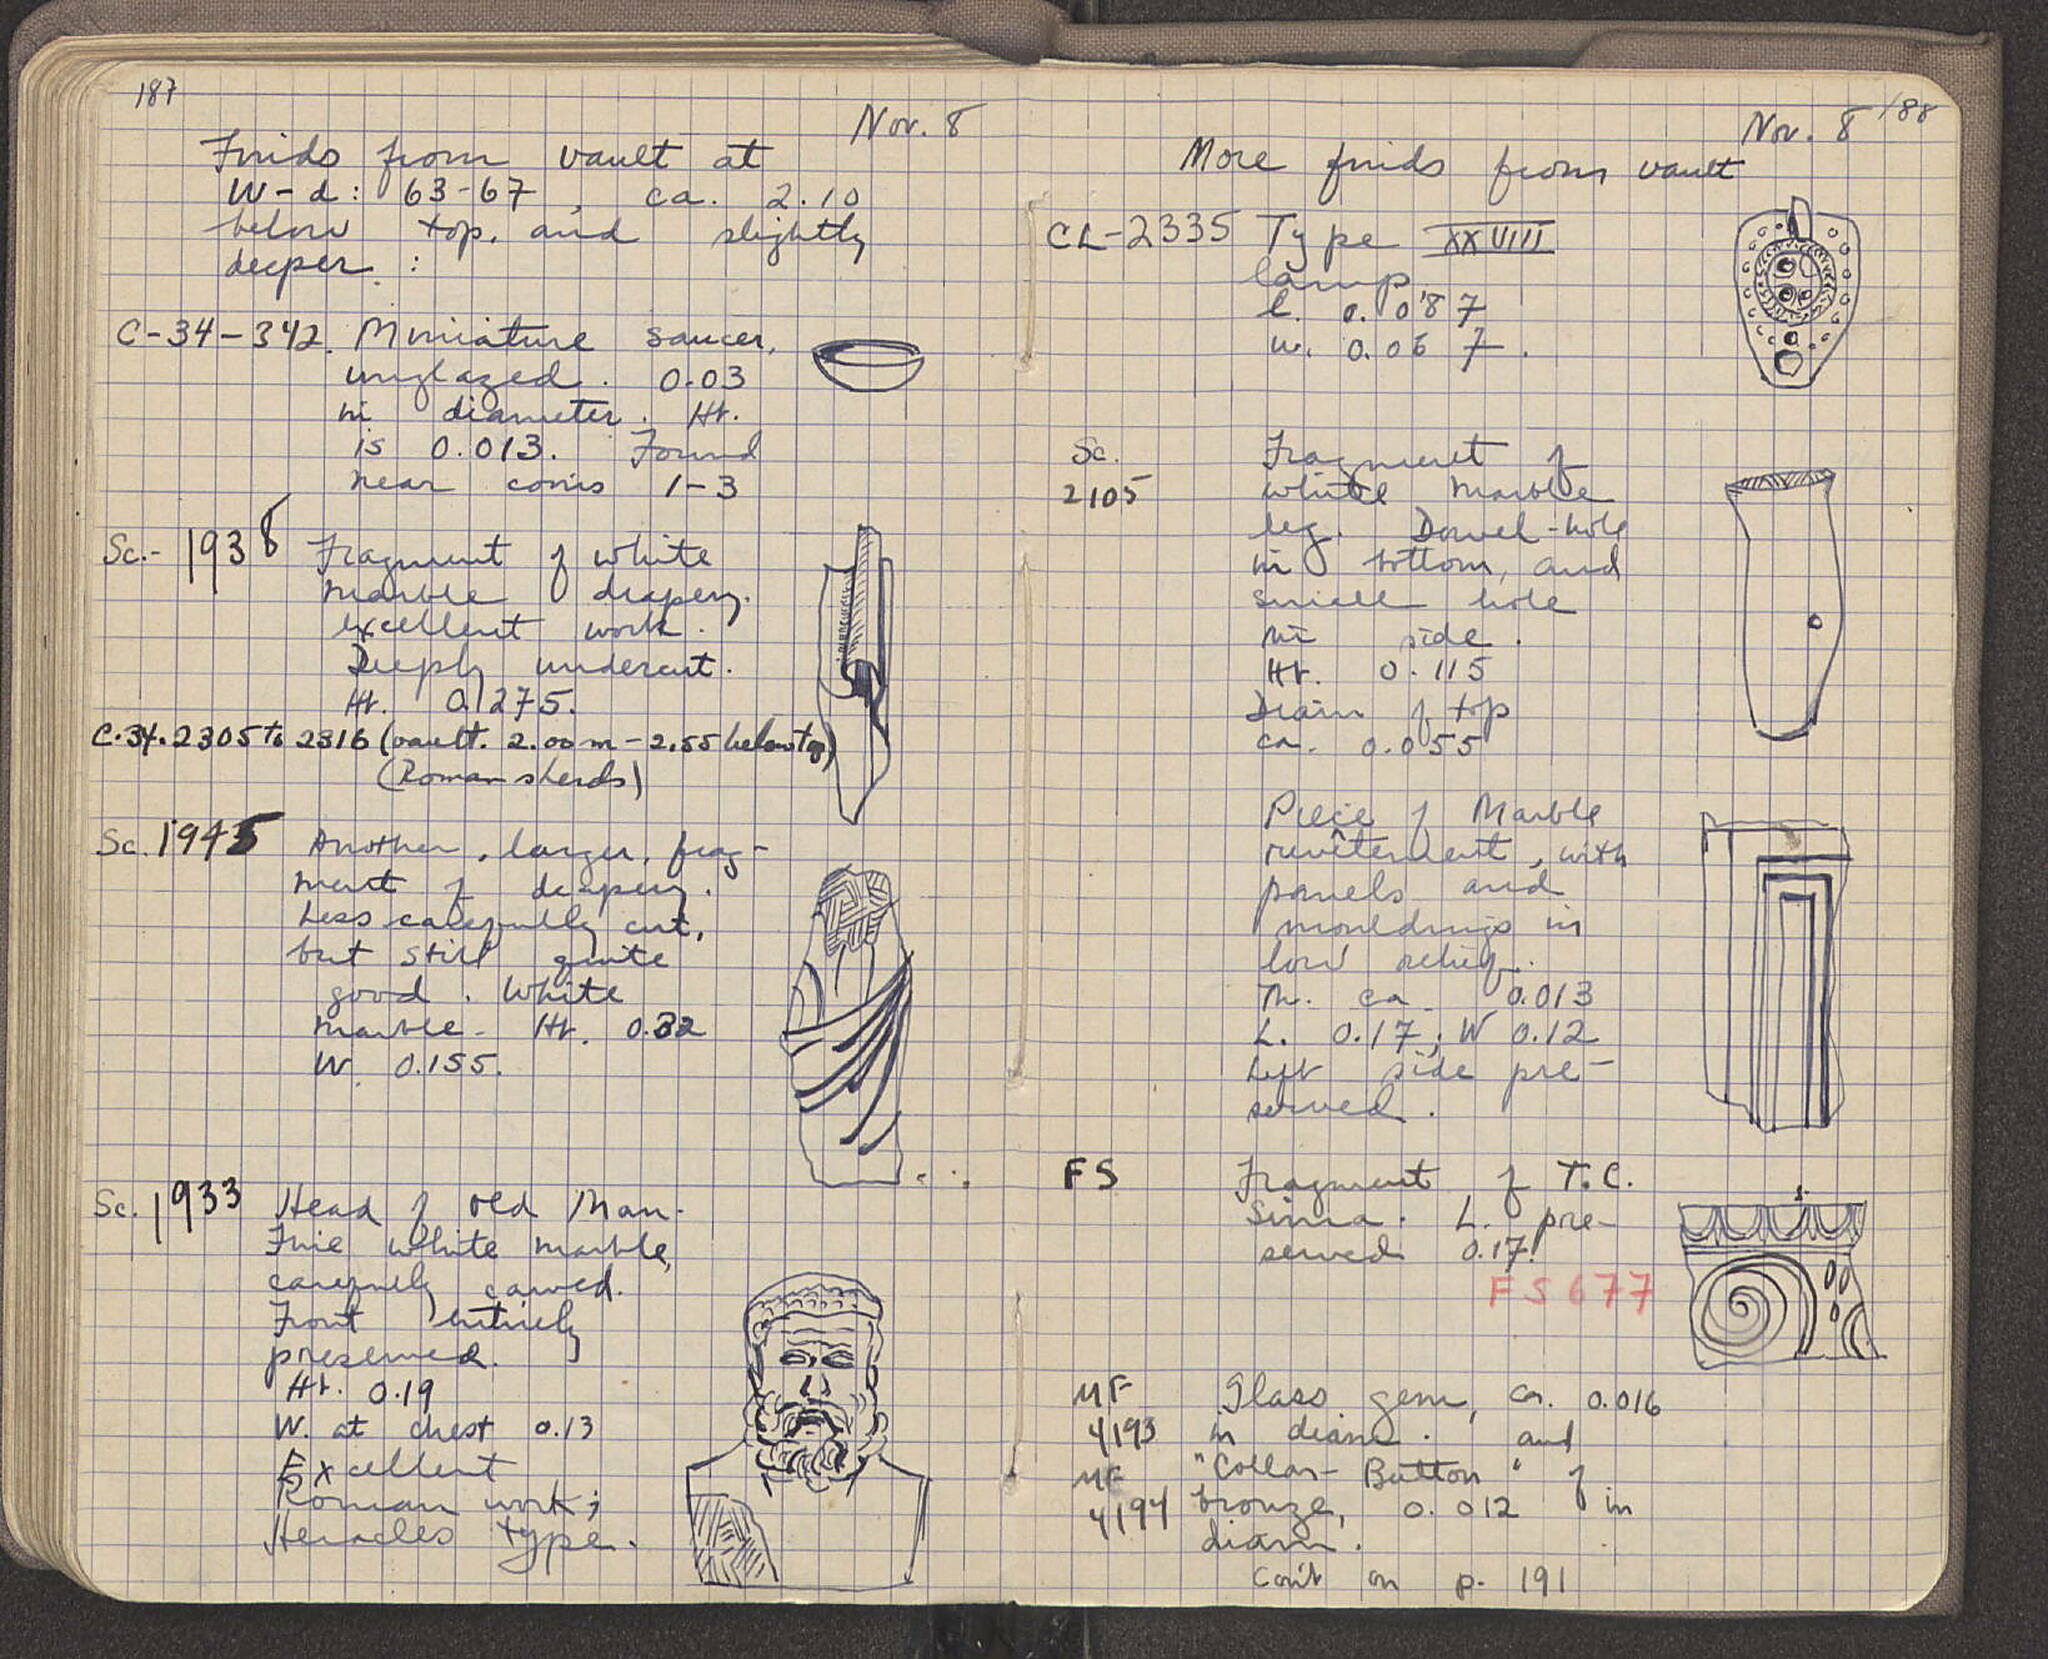 187
Nov. 8
Finds from vault at
W-d: 63-67, ca. 2.10
below top. and slightly
deeper :
C-34-342. Miniature saucer,
unglazed. 0.03
in diameter. Ht.
is 0.013. Found
near coins 1-3
Sc.- 1938 Fragment of white
marble drapery.
excellent work.
Deeply undercut.
Ht. 0.275.
C.34.2305 to 2316 (vault. 2.00m-2.55 below top)
(Roman sherds)
Sc. 1945 Another, larger, frag-
ment of drapery.
Less carefully cut,
but still quite
good. White
marble- Ht. 0.32
W. 0.155.
Sc. 1933 Head of old Man.
Fine white marble,
carefully carved.
Front entirely
preserved.
Ht. 0.19
W. at chest 0.13
Excellent
Roman work;
Heracles type.
188
Nov. 8
More finds from vault
CL-2335 Type XXVIII
lamp
l. 0.087
w. 0.067.
Sc. Fragment of
2105 white marble
leg. Dowel-hole
in bottom, and
small hole
in side.
Ht. 0.115
Diam of top
ca. 0.055
Piece of Marble
revêtement, with
panels and
mouldings in
low relief.
Th. ca 0.013
L. 0.17; W 0.12
Left side pre-
served.
FS Fragment of T.C.
Sima. L. pre-
served 0.17.
FS 677
MF Glass gem, ca. 0.016
4193 in diam. and
MF "Collar-Button" of
4194 bronze, 0.012 in
diam.
Con't on p. 191